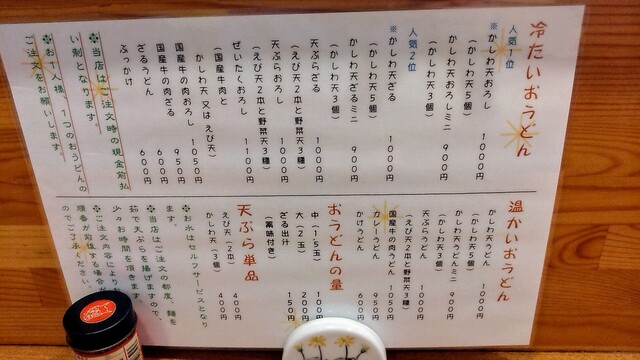 冷たいおうどん
人気1位
※かしわ天おろし 1000円
(かしわ天5個)
かしわ天おろしミニ 900円
(かしわ天3個)
人気2位
※かしわ天ざる 1000円
(かしわ天5個)
かしわ天ざるミニ 900円
(かしわ天3個)
天ぷらざる 1000円
(えび天2本と野菜天3種)
天ぷらおろし 1000円
(えび天2本と野菜天3種)
ぜいたくおろし 1100円
(国産牛の肉と
かしわ天 又は えび天)
国産牛の肉おろし 1050円
国産牛の肉ざる 950円
ざるうどん 600円
ぶっかけ 600円
※当店はご注文時の現金前払
い制となります。
※お1人様、1つのおうどんの
ご注文をお願いします。
温かいおうどん
かしわ天うどん 1000円
(かしわ天5個)
かしわ天うどんミニ 900円
(かしわ天3個)
天ぷらうどん 1000円
(えび天2本と野菜天3種)
国産牛の肉うどん 1050円
カレーうどん 950円
かけうどん 600円
おうどんの量
中(1.5玉) 100円
大(2玉) 200円
ざる出汁 150円
(薬味付き)
天ぷら単品
えび天(2本) 400円
かしわ天(3個) 400円
※お水はセルフサービスとなり
ます。
※当店はご注文の都度、麺を
茹で天ぷらを揚げますので、
少々お時間を頂きます。
※ご注文内容により
順番が前後する場合が
のでご了承ください。